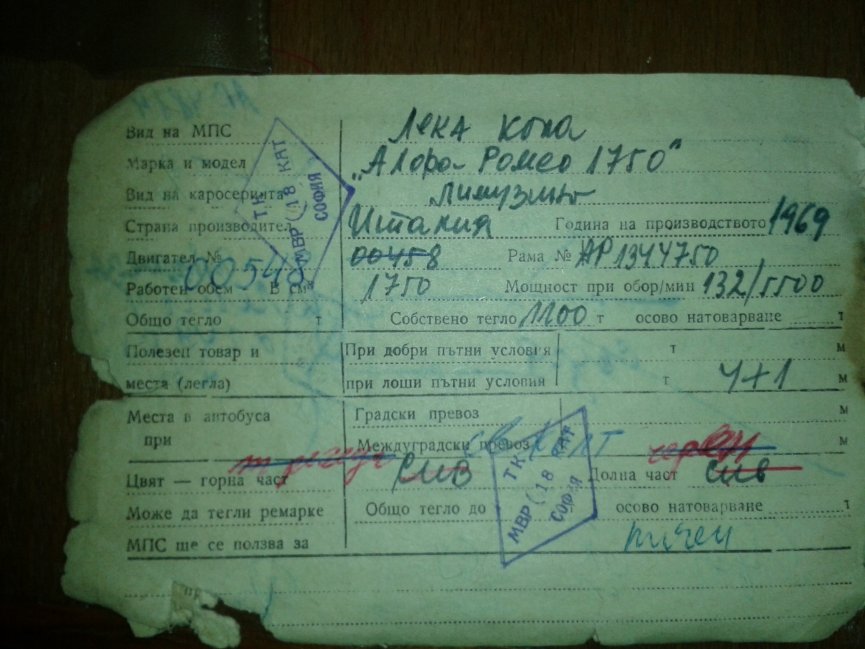 Вид на МПС Лека кола
Марка и модел „Алфа-Ромео 1750"
Вид на каросерията лимузина
Страна производител Италия Година на производството 1969
Двигател № 00458 Рама № АР1344750
00548
Работен обем В см³ 1750 Мощност при обор/мин 132/5500
Общо тегло т Собствено тегло 1100 т осово натоварване т
Полезен товар и При добри пътни условия т м
места (легла) при лоши пътни условия т 4+1 м
Места в автобуса Градски превоз м
при Междуградски превоз м
червен
Цвят — горна част сив Долна част сив
Може да тегли ремарке Общо тегло до осово натоварване т
МПС ще се ползва за личен
ТК
МВР (18 КАТ
СОФИЯ
ТК
МВР (18 КАТ
СОФИЯ